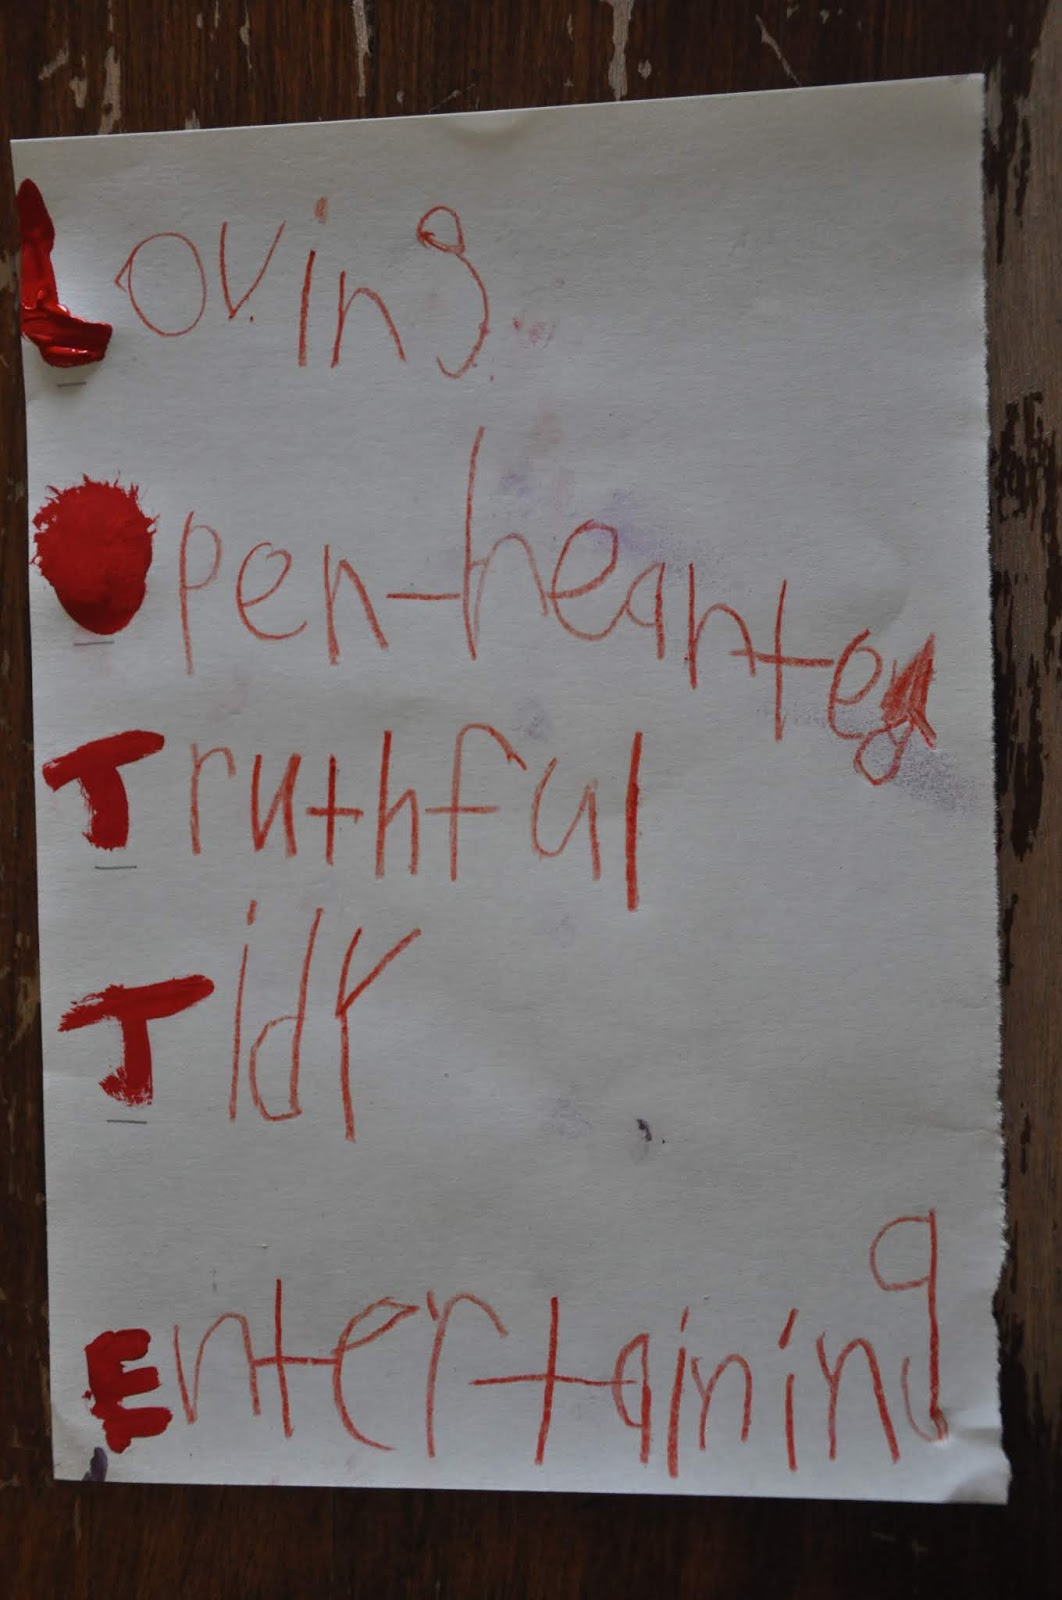 Loving
Open-hearted
Truthful
Tidy
Entertaining